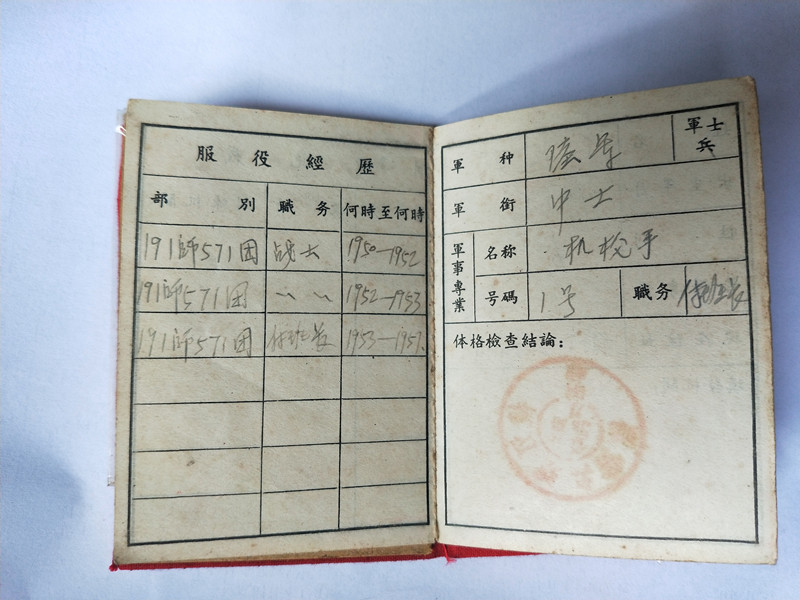 服役經歷
部別 職务 何時至何時
191師571团 战士 1950—1952
191師571团 〃 〃 1952—1953
191師571团 付班长 1953—1957.
軍种 陸军 軍士兵
軍銜 中士
軍事專業 名称 机枪手
号碼 1号 職务 付班长
体格檢查結論: